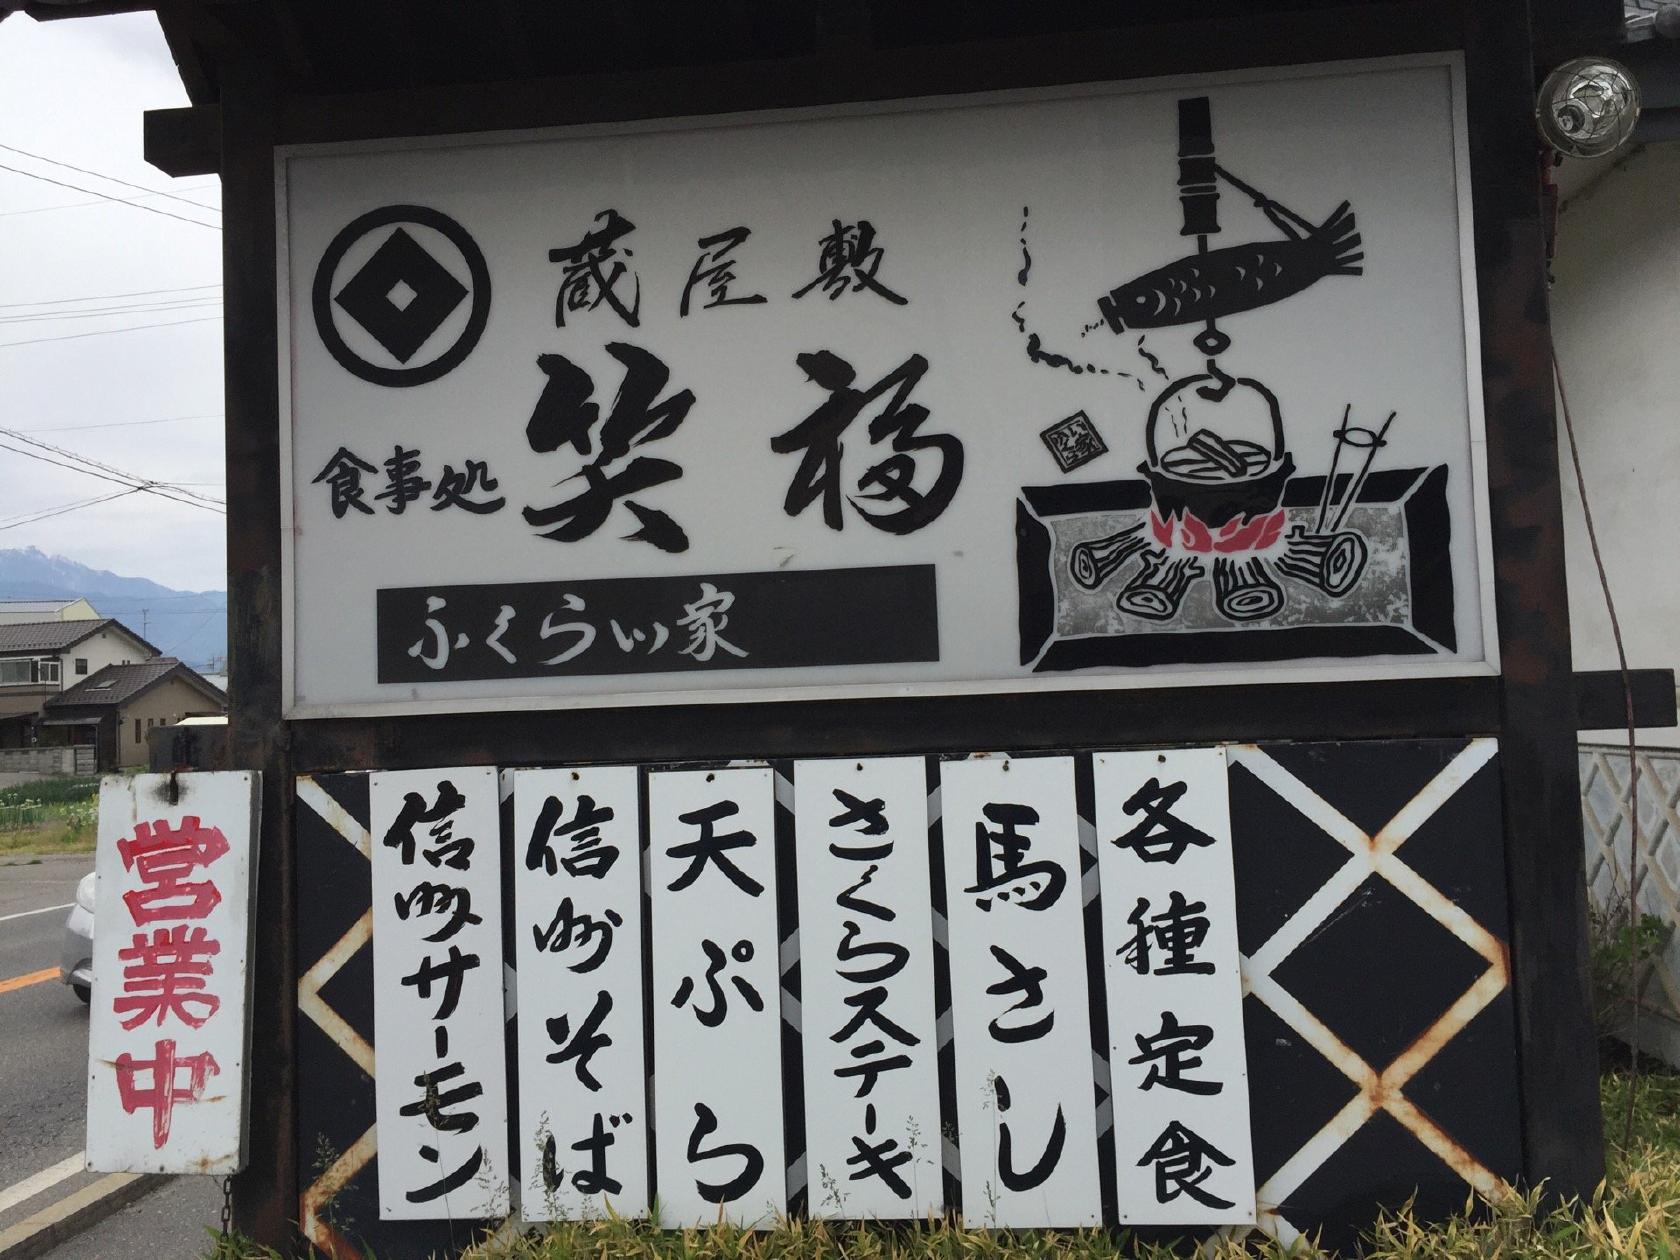 蔵屋敷
食事処
笑福
ふくらい家
営業中
信州サーモン
信州そば
天ぷら
さくらステーキ
馬さし
各種定食